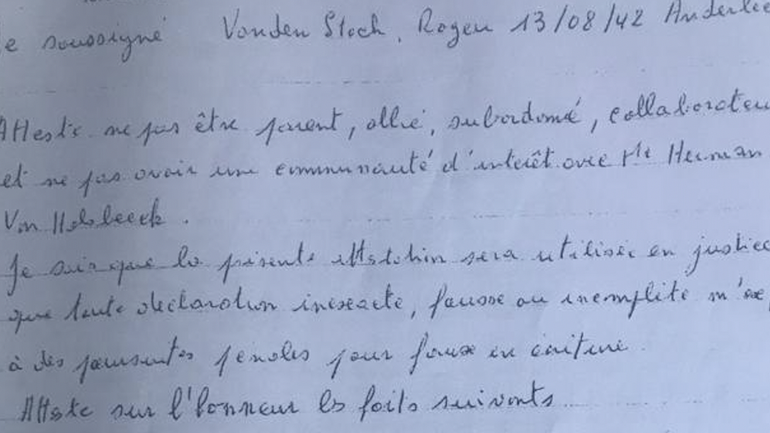 e soussigné Vanden Stock, Roger 13/08/42 Anderlec
Atteste ne pas être parent, allié, subordonné, collaborateu
et ne pas avoir une communauté d'interêt avec Mr Herman
Van Holsbeeck.
Je sais que la présente attestation sera utilisée en justice
que toute déclaration inexacte, fausse ou incomplète m'ex
à des poursuites pénales pour faux en écriture.
Atteste sur l'honneur les faits suivants